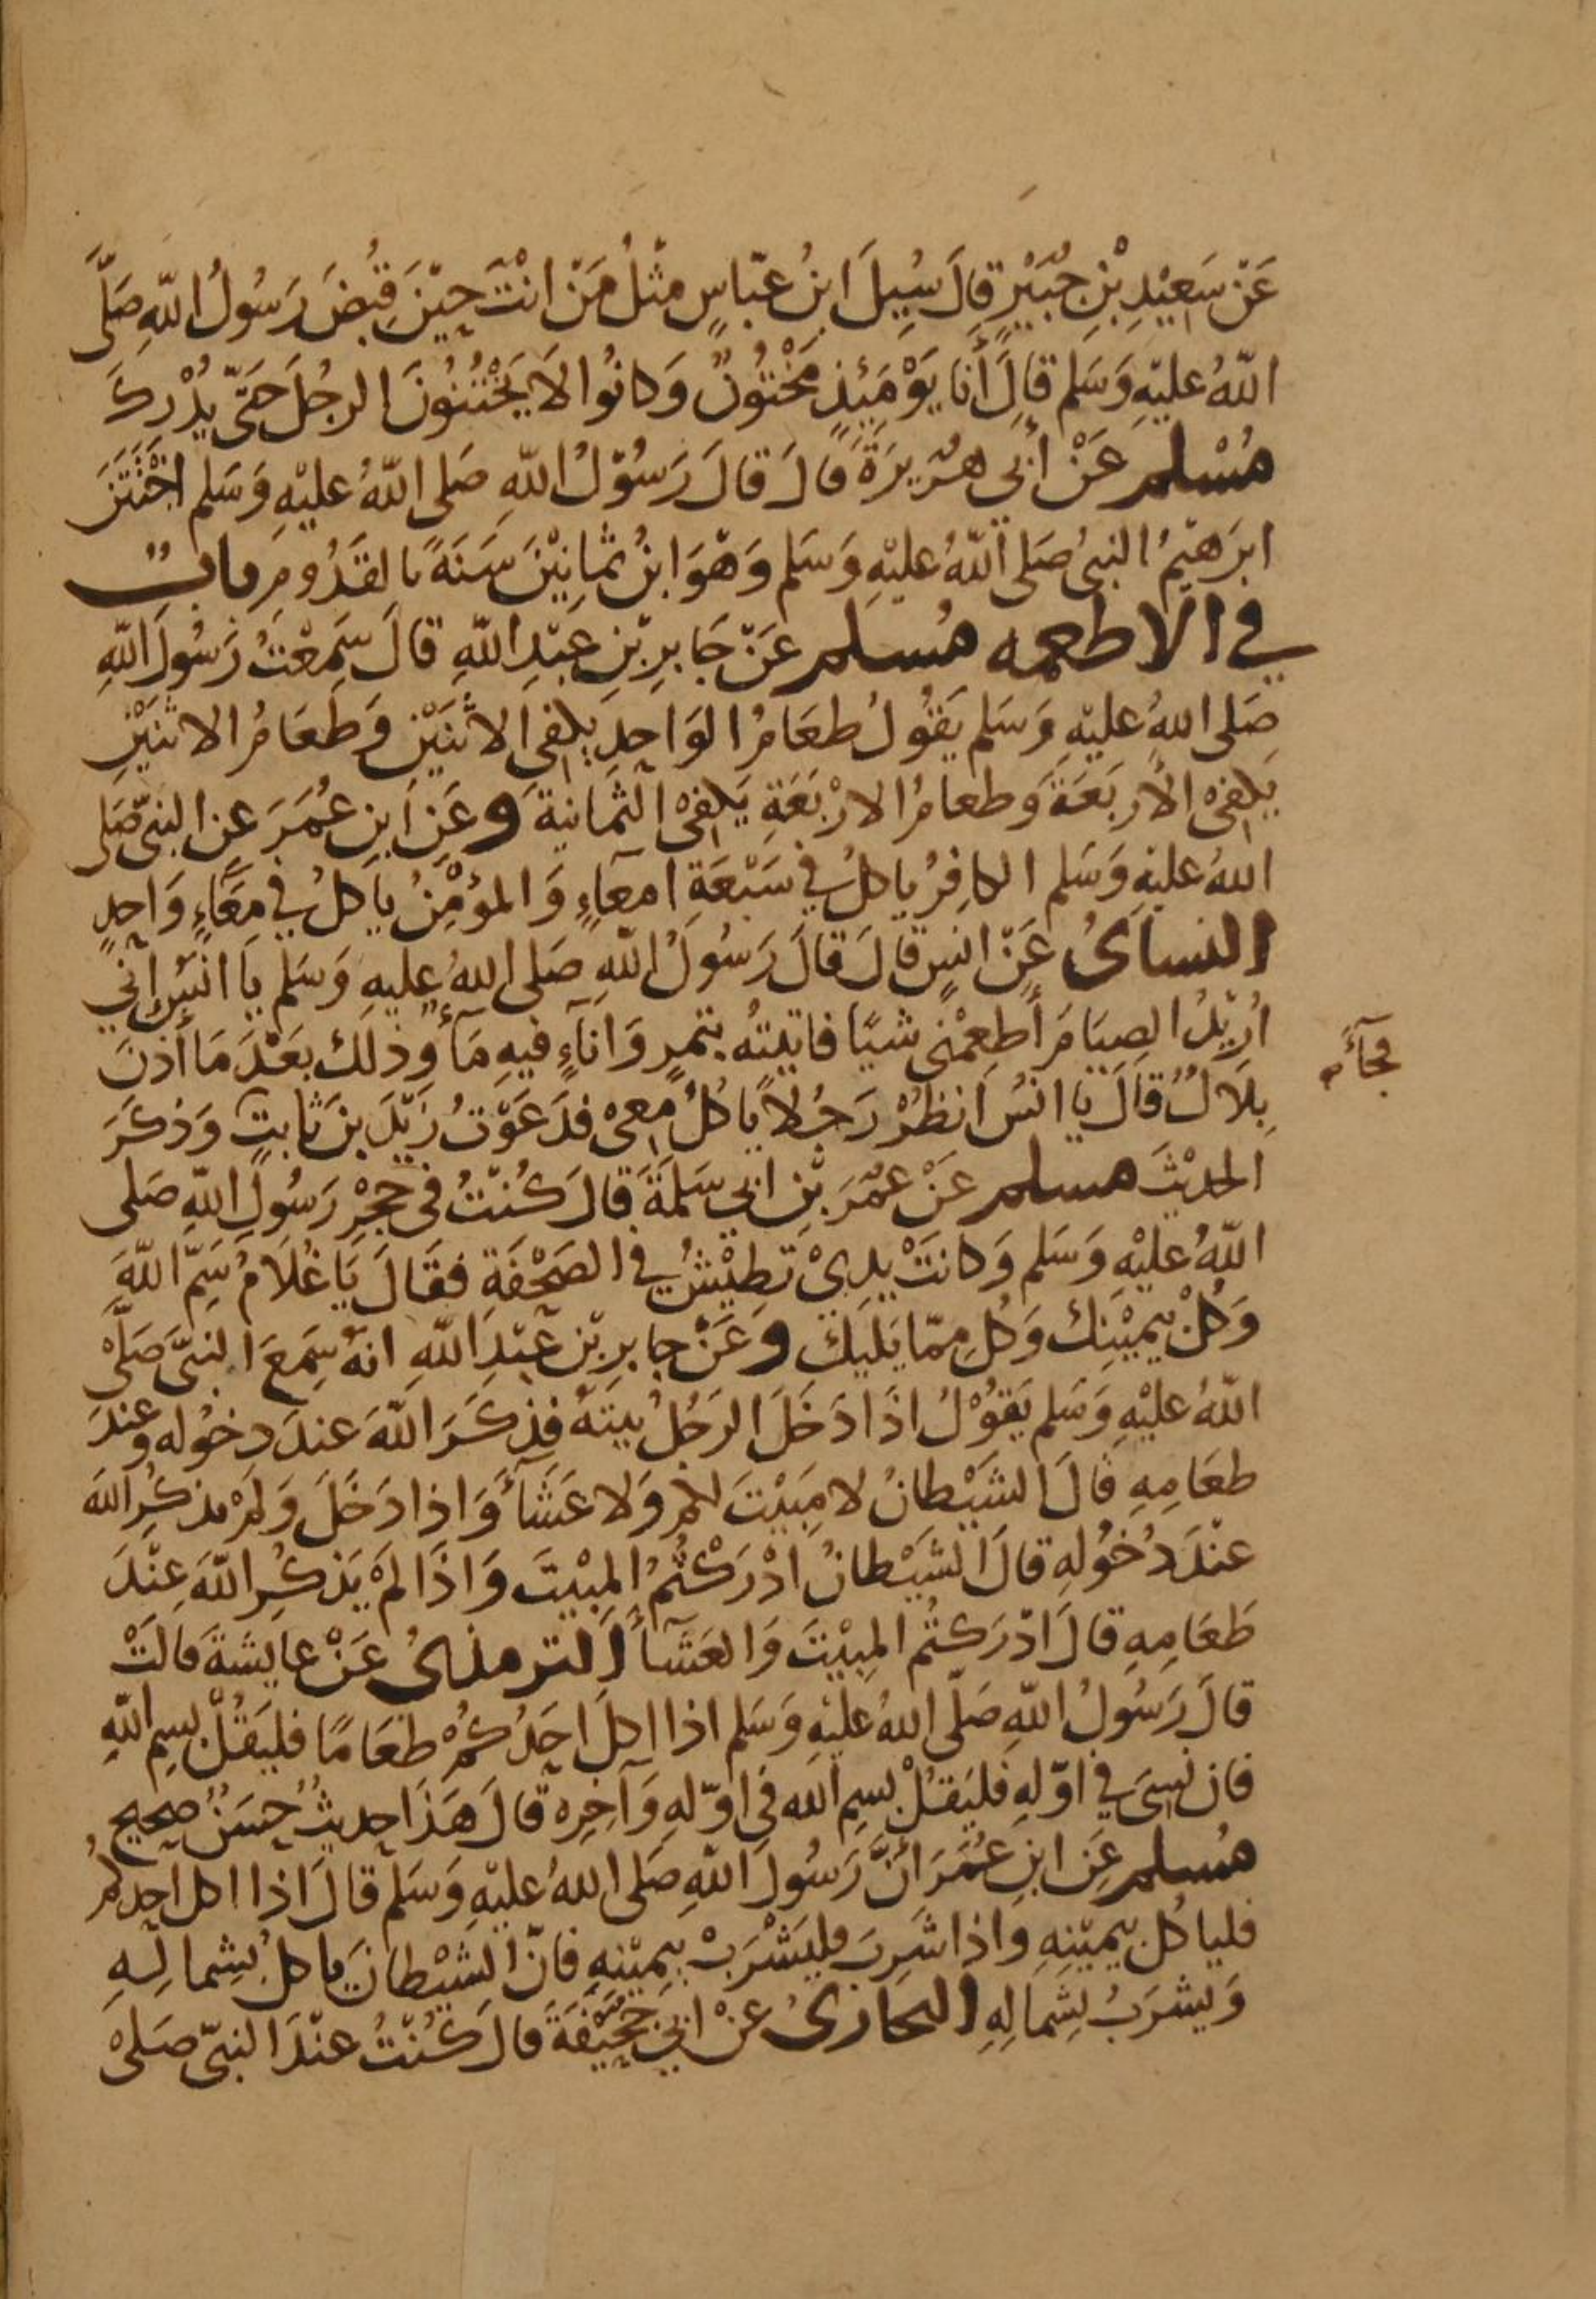 عَنْ سَعِيْدِ بْنِ جُبَيْرٍ قالَ سُيِلَ ابنُ عبّاسٍ مثْلُ مَنْ انْتَ حِيْنَ قُبِضَ رَسُولُ اللّهِ صَلَّى
اللّهُ عليْهِ وَسَلم قالَ أَنا يَوْمَئِذٍ مَخْتُونٌ وَكانُوا لا يَخْتِنُونَ الرجُلَ حَتَّى يُدْركَ
مُسْلم عَنْ أبي هُرَيرَةَ قالَ قالَ رَسُوْلُ اللّهِ صَلى اللّهُ عليْهِ وَسَلم اخْتَتَنَ
ابرَهيْمُ النبىُ صَلى اللّهُ عليْهِ وَسَلم وَهْوَ ابنُ ثمانِيْنَ سَنَةً بالقَدُومِ بابٌ
في الاطعمه مُسلم عَنْ جَابرِ بْنِ عبْدِ اللّهِ قالَ سَمِعْتُ رَسُولَ اللّهِ
صَلى اللهُ عليْهِ وَسَلم يَقُولُ طعَامُ الوَاحِدِ يكفى الاثنَيْن وَطعَامُ الاثنَيْنِ
يَكفىْ الأربَعَةَ وَطعامُ الارْبَعَةِ يَكفىْ الثمانيَةَ وعَنِ ابنِ عُمَرَ عن النبىّ صَلى
اللهُ عليْهِ وَسَلم الكافِرُ ياكلُ في سَبْعَةِ امعَاءٍ وَالمؤْمِنُ ياكلُ في مِعَاءٍ وَاحِدٍ
النساىُ عَنْ انسٍ قالَ قالَ رَسُولُ اللّهِ صَلى اللهُ عليهِ وَسَلم يا انسُ إني
اُرِيْدُ الصِيَامَ أَطعِمْنى شيًا فاتيتُه بتمرٍ وَاناءٍ فيهِ مَآءٌ وذلك بعَدَ مَا أذنَ
فجآءَه
بِلاَلٌ قالَ يا انسُ انظُرْ رَجُلاً ياكُلْ معىْ فدَعَوْتُ زيْدَ بنَ ثابتٍ وَذكَرَ
الحديْثَ مسلم عَنْ عُمَرَ بْنِ ابي سَلمَةَ قالَ كُنْتُ في حِجْرِ رَسُولِ اللّهِ صَلى
اللّهُ عليْهِ وَسَلم وَكانتْ يدِيْ تَطيْشُ في الصَحْفَةِ فقَالَ يَا غُلاَمُ سَمِّ اللّهَ
وَكُلْ بيَمِيْنِك وَكُل مِمّا يَليكَ وعَنْ جابرِ بْنِ عَبْدِ اللّهِ انهُ سَمِعَ النبىَّ صَلَّىْ
اللّهُ عليْهِ وَسَلم يَقوْلُ اذَا دَخَلَ الرَجُلُ بيتَهُ فذكَرَ اللّهَ عندَ دخُوله وعندَ
طعَامِهِ قالَ الشَيْطانُ لا مَبيْتَ لكم وَلا عَشَآءَ وَاذا دَخَلَ وَلمْ يذكُرِ اللهَ
عنْدَ دُخُولهِ قالَ الشَيْطانُ ادْرَكْتُمُ المبيْتَ وَاذَا لمْ يَذكُرِ اللّهَ عِنْدَ
طَعَامِهِ قالَ ادْرَكتُم المبيْتَ وَالعَشَآءَ الترمذيُ عَنْ عايشَةَ قالَتْ
قالَ رَسُولُ اللّهِ صَلّى اللهُ عليْهِ وَسَلم اذا اكلَ احَدُكُمْ طعَامًا فليَقُلْ بسمِ اللّهِ
فان نسِىَ في اوّلهِ فليَقُلْ بسمِ الله في اوّلهِ وَآخِرِه قالَ هَذَا حديثٌ حسَنٌ صحيح
مُسلم عَنِ ابنِ عُمَرَ أنَّ رَسُولَ اللّهِ صَلى اللهُ عليْهِ وَسَلم قالَ اذا اكل احدكمْ
فلياكُل بيمينِهِ واذا شَرِبَ فليَشْرَبْ بيمِيْنهِ فانّ الشيْطانَ ياكلُ بشِمالِهِ
وَيشرَبُ بشِمَالِهِ البخارىُ عنْ ابي جُحَيْفَةَ قالَ كُنْتُ عنْدَ النبىّ صَلىْ